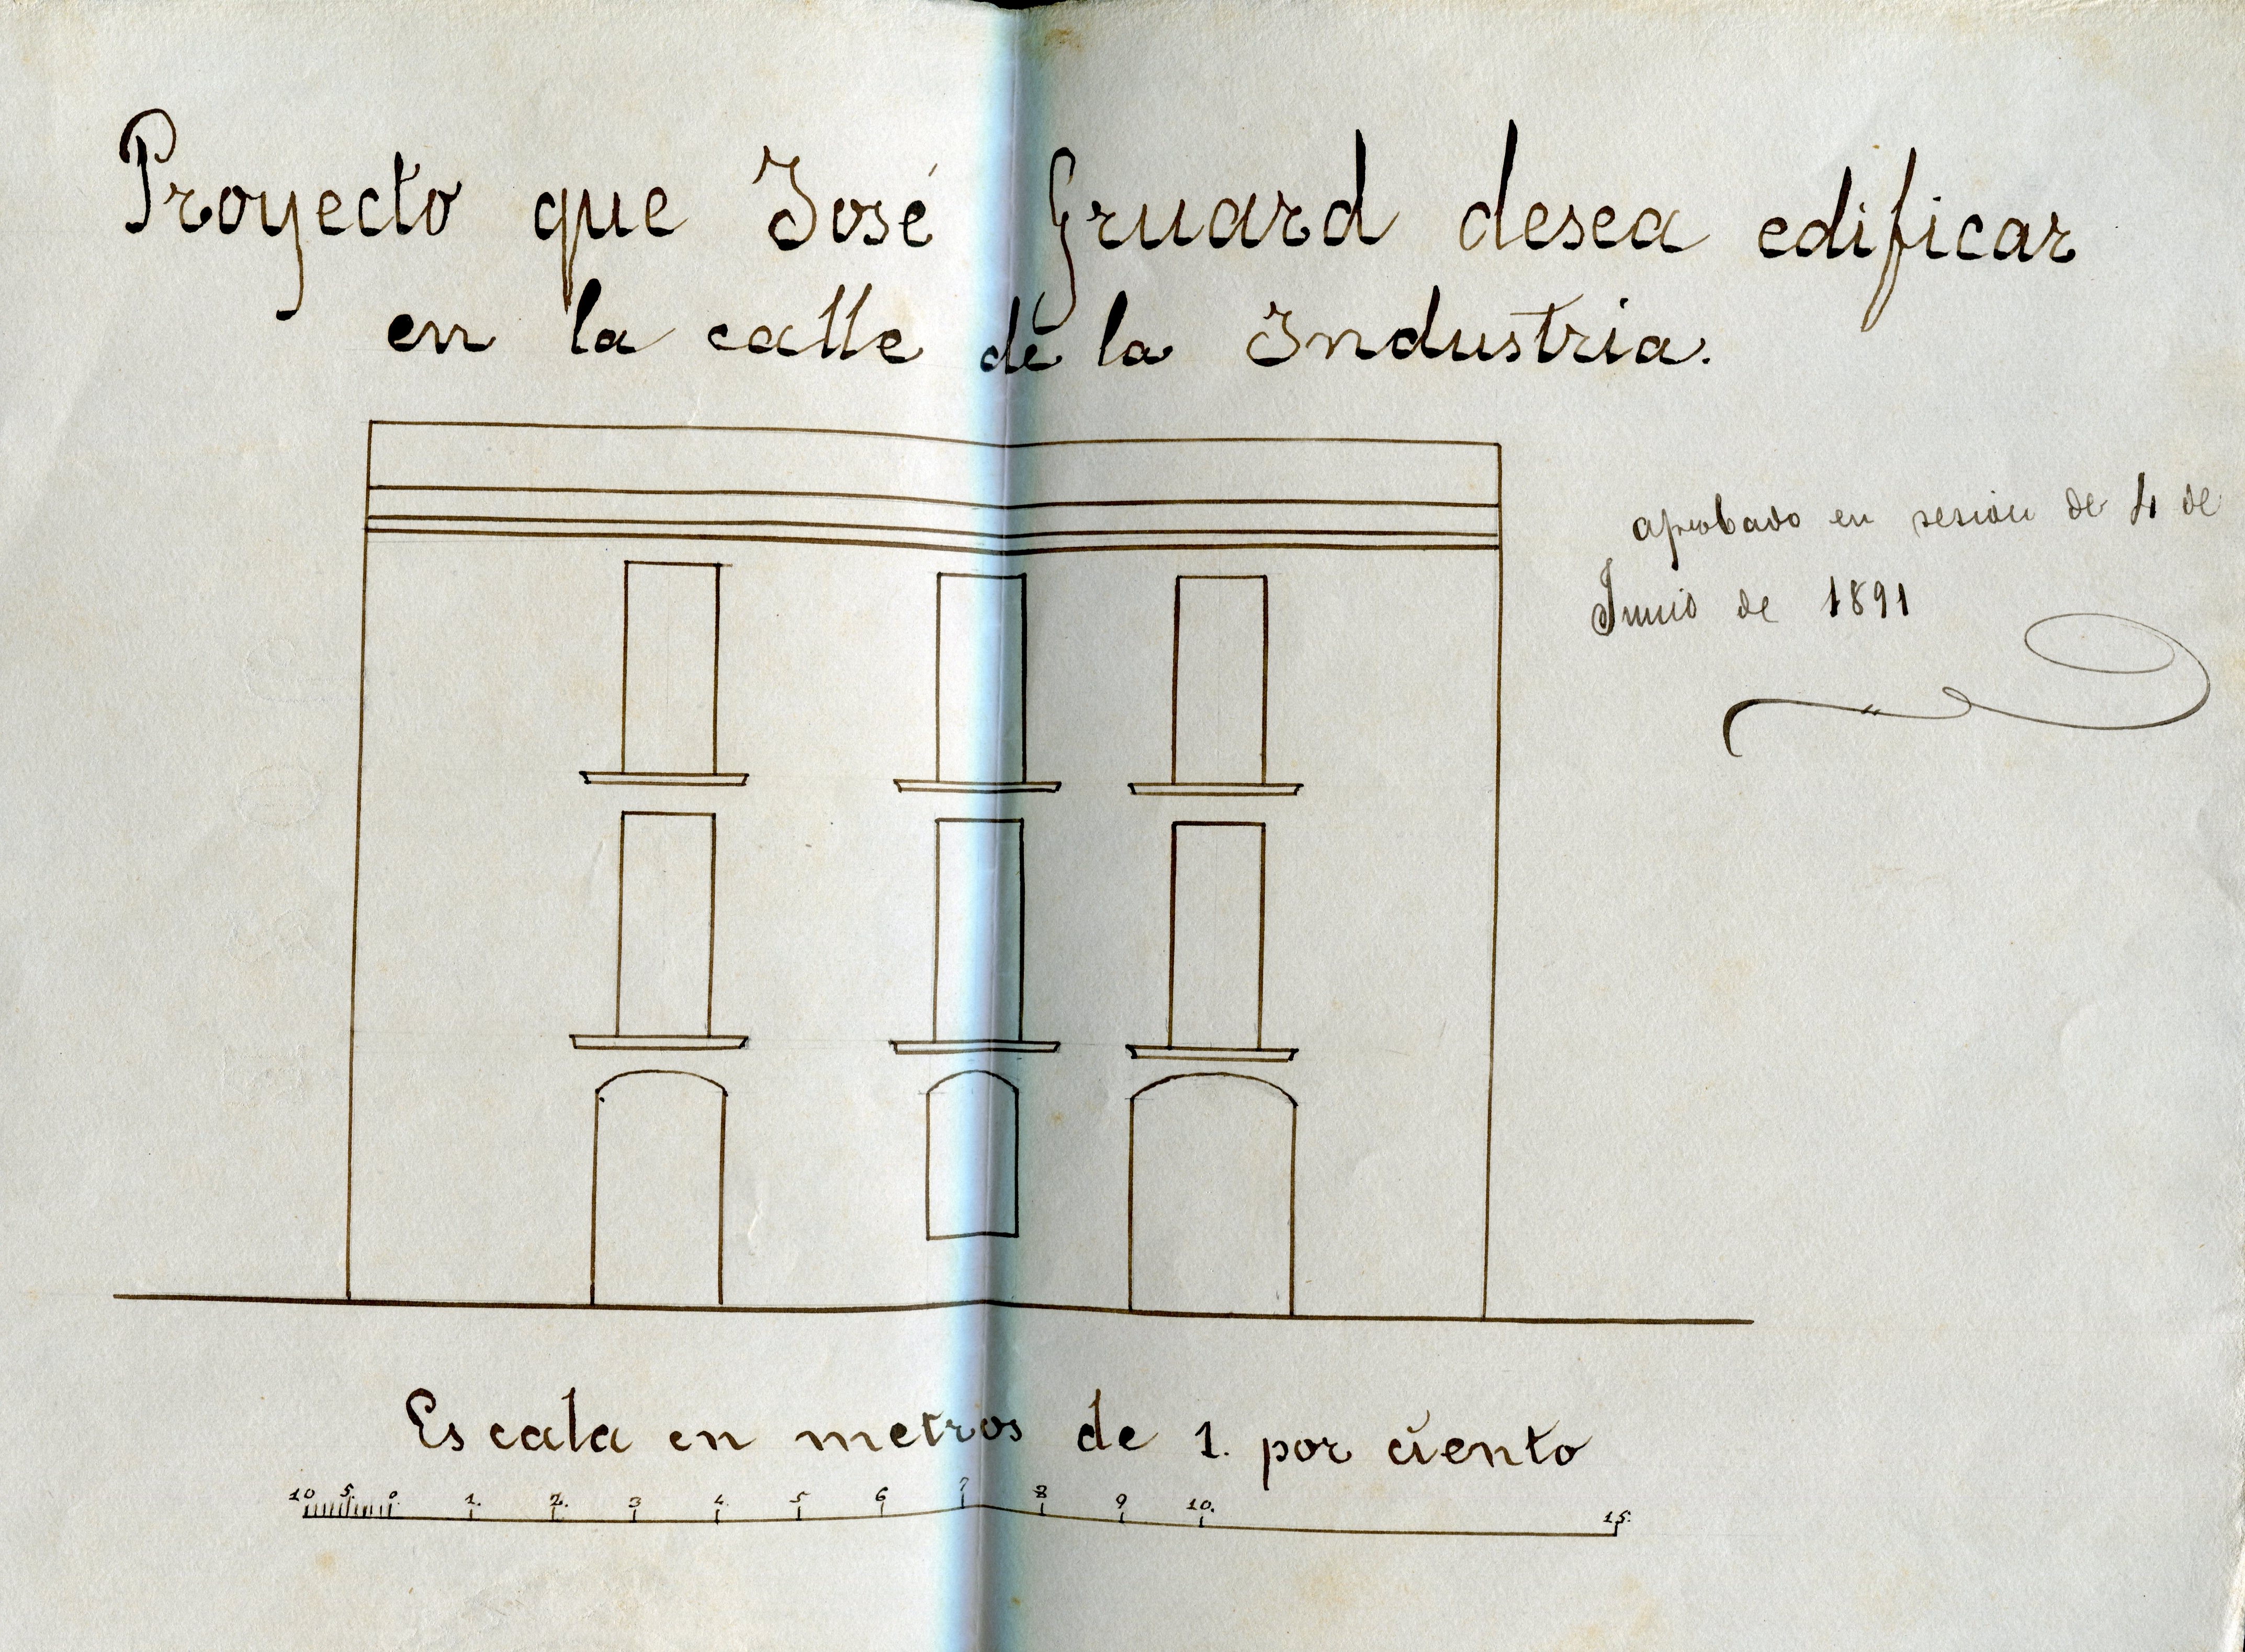 Proyecto que José Gruard desea edificar
en la calle de la Industria.
aprobado en sesion de 4 de
Junio de 1891
Escala en metros de 1. por ciento
10 5. 0. 1. 2. 3 4. 5 6 7 8 9 10. 15.